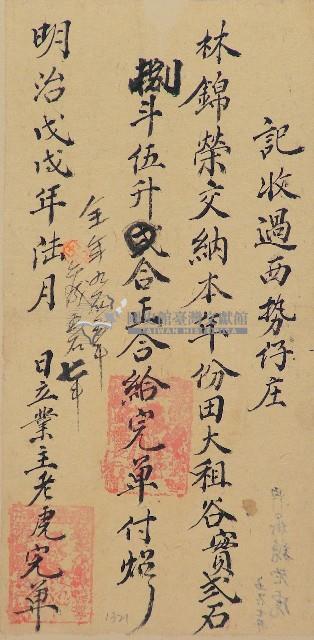 記收過西勢仔庄
林錦榮交納本年份田大租谷實弍石
捌斗伍升弍合正合給完單付炤
仝年九
七年
明治戊戌年陸月 日立業主老虎完單
國史館臺灣文獻館
TAIWAN HISTORICA
1321